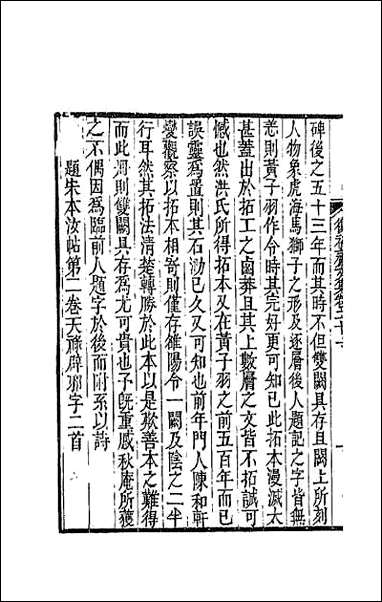 碑後之五十三年而其時不但雙闕具存且闕上所刻
人物象虎海馬獅子之形及逐層後人題記之字皆無
恙則黃子羽作令時其完好更可知已此拓本漫滅太
甚蓋出於拓工之鹵莽且其上數層之文皆不拓誠可
憾也然洪氏所得拓本又在黃子羽之前五百年而已
誤靈爲置則其石泐已久又可知也前年門人陳和軒
變觀察以拓本相寄則僅存雒陽令一闕及陰之二半
行耳然其拓法清楚轉勝於此本以是歎善本之難得
而此冊則雙闕具存爲尤可貴也予旣重感秋庵所獲
之不偶因爲臨前人題字於後而附系以詩
題朱本汝帖第二卷天豫辟邪字二首